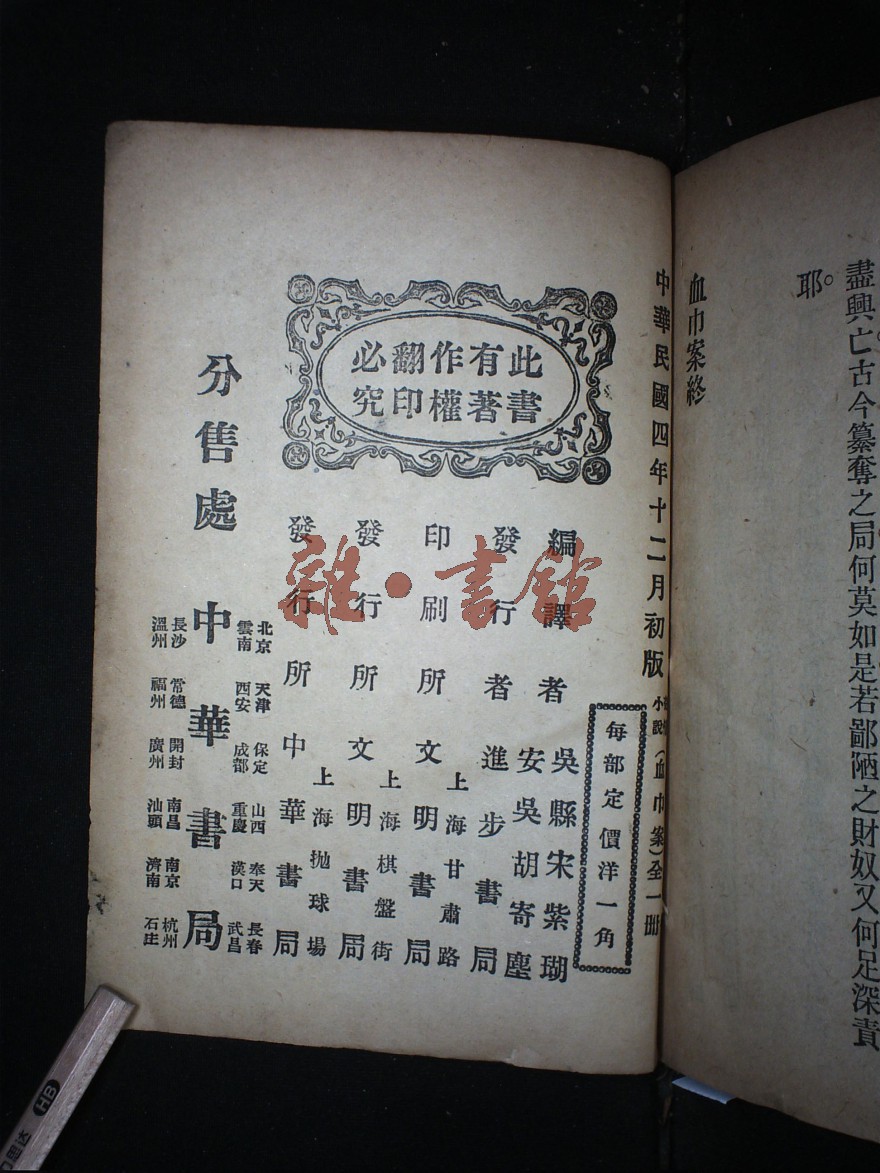 盡興亡古今纂奪之局何莫如是若鄙陋之財奴又何足深責
耶。
血巾案終
中華民國四年十二月初版
小說(血巾案)全一冊
每部定價洋一角
此書
有著
作權
翻印
必究
編譯者 吳縣宋紫瑚
安吳胡寄塵
發行者 進步書局
印刷所 上海甘肅路
文明書局
發行所 上海棋盤街
文明書局
發行所 上海拋球場
中華書局
分售處 中華書局
北京 天津 保定 山西 奉天 長春
雲南 西安 成都 重慶 漢口 武昌
長沙 常德 開封 南昌 南京 杭州
溫州 福州 廣州 汕頭 濟南 石庄
雜·書館
HB